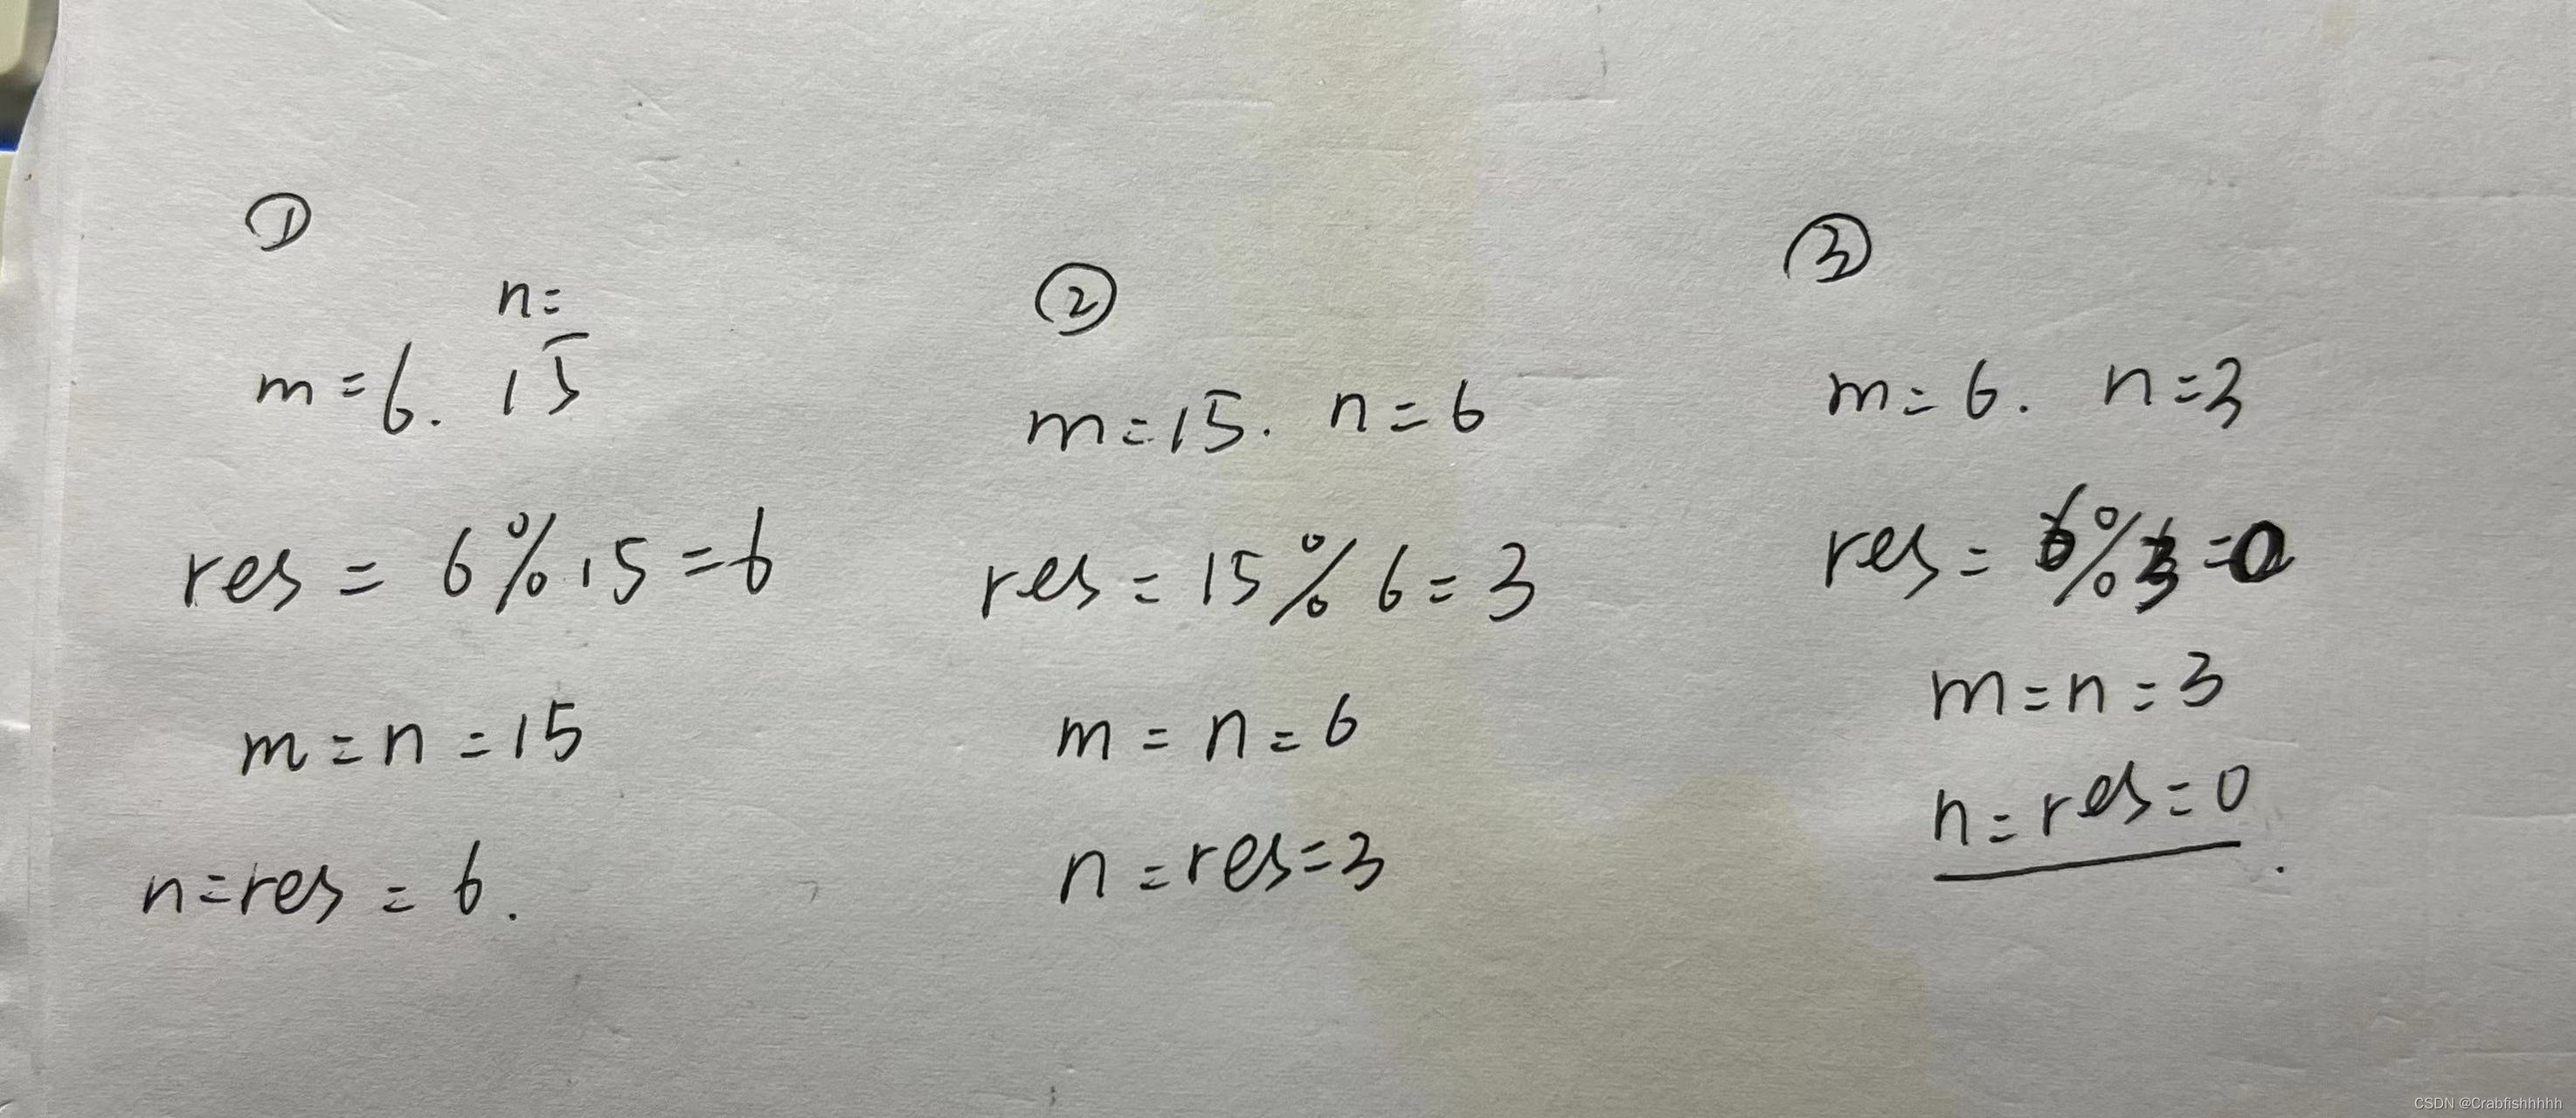 ①
n=
m=6. 15
res = 6%15=6
m=n=15
n=res=6.
②
m=15. n=6
res=15%6=3
m=n=6
n=res=3
③
m=6. n=3
res=6%3=0
m=n=3
n=res=0.
CSDN @Crabfishhhhh